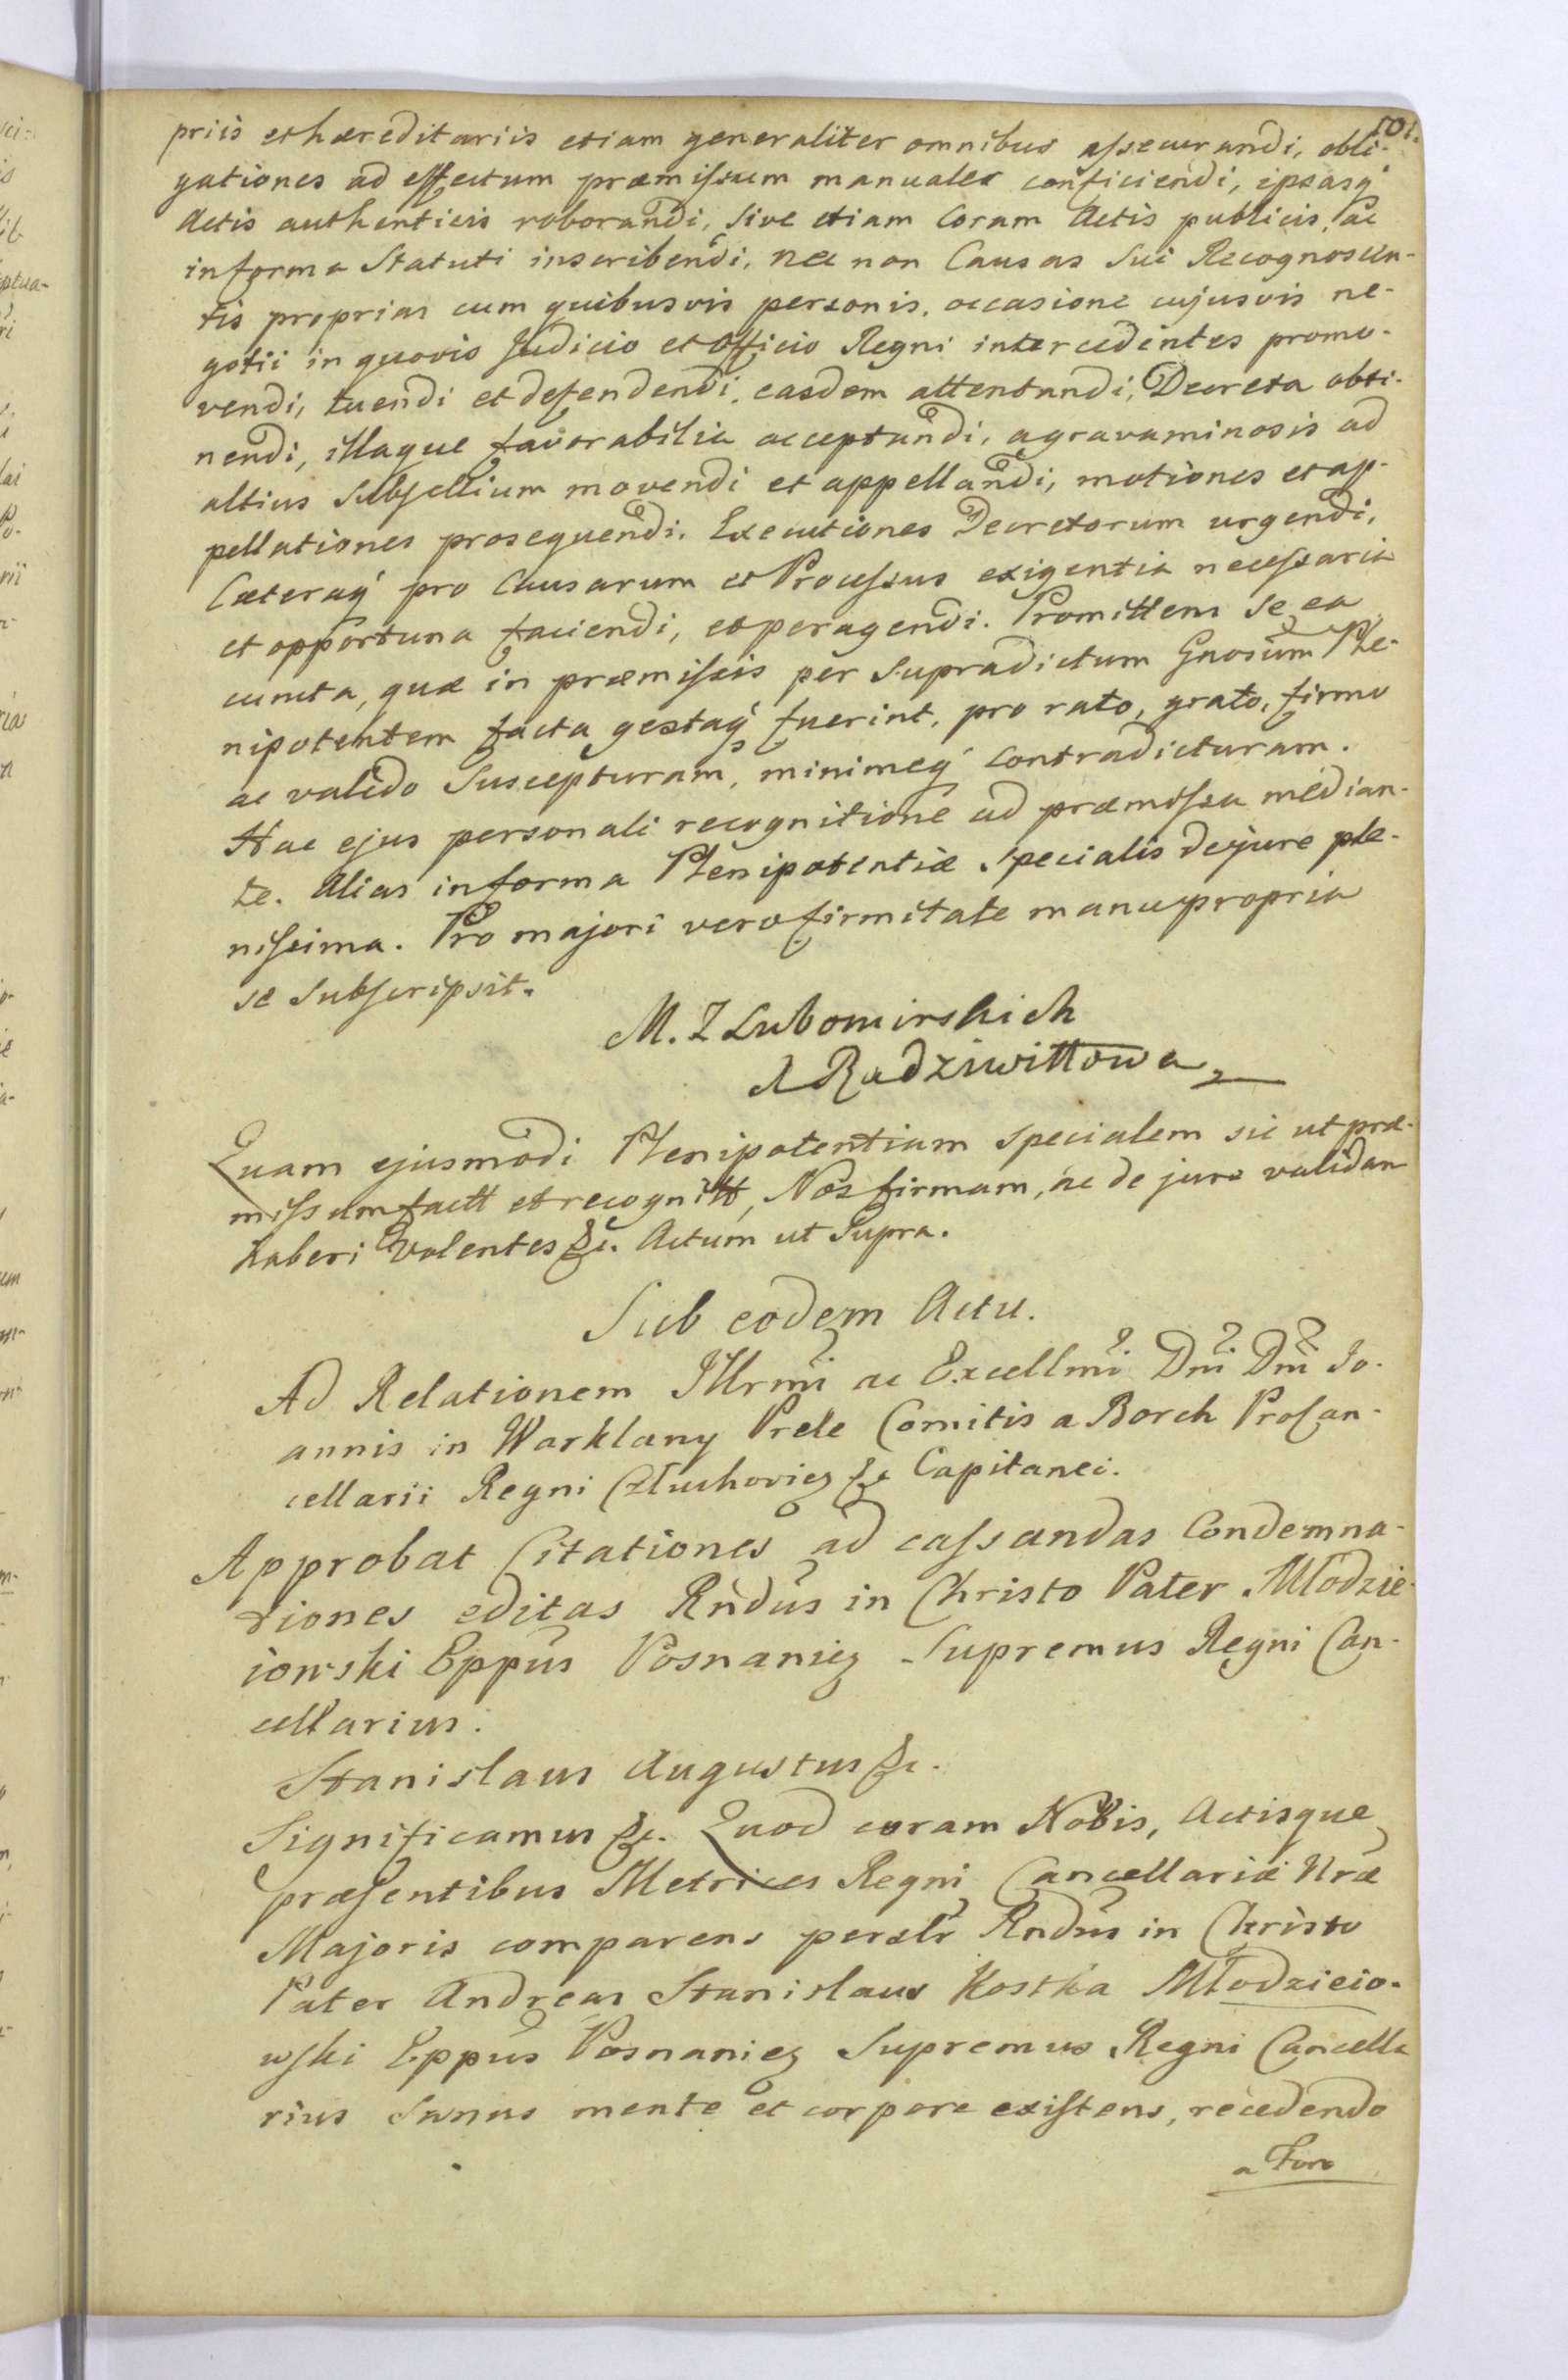 501.
priis et hæreditariis etiam generaliter omnibus assecurandi, obli-
gationes ad effectum præmissum manuales conficiendi, ipsasq́
Actis authenticis roborandi, sive etiam Coram Actis publicis, ac
in forma Statuti inscribendi, nec non Causas Sui Recognoscen-
tis proprias cum quibusvis personis, occasione cujusvis ne-
gotii in quovis Judicio et Officio Regni intercedentes promo-
vendi, tuendi et defendendi, easdem attentandi, Decreta obti-
nendi, illaque favorabilia acceptandi, agravaminosis ad
altius Subsellium movendi et appellandi, motiones et ap-
pellationes prosequendi. Executiones Decretorum urgendi,
Cæteraq́ pro Causarum et Processus exigentia necessaria
et opportuna faciendi, et peragendi. Promittens se ea
cuncta, quæ in præmissis per Supradictum Gnosum Ple-
nipotentem facta gestaq́ fuerint, pro rato, grato, firmo
ac valido Suscepturam, minimeq́ contradicturam.
Hac ejus personali recognitione ad præmissa median-
te. Alias in forma Plenipotentiæ Specialis de jure ple-
nissima. Pro majori vero firmitate manu propria
se Subscripsit.
M. Z Lubomirskich
Radziwiłłowa
Quam ejusmodi Plenipotentiam Specialem sic ut præ-
missum factt et recognitt, Nos firmam, ac de jure validam
haberi Volentes &c. Actum ut Supra.
Sub eodem Actu.
Ad Relationem Illrmi ac Excellmi Dni Dni Jo-
annis in Warklany Prele Comitis a Borch ProCan-
cellarii Regni Człuchovien &c Capitanei.
Approbat Citationes ad cassandas Condemna-
tiones editas Rndus in Christo Pater Młodzie-
iowski Eppus Posnanien Supremus Regni Can-
cellarius.
Stanislaus Augustus &c.
Significamus &c. Quod coram Nobis, Actisque
præsentibus Metrices Regni Cancellariæ Nræ
Majoris comparens persltr Rndus in Christo
Pater Andreas Stanislaus Kostka Młodzieio-
wski Eppus Posnanien Supremus Regni Cancella
rius Sanus mente et corpore existens, recedendo
a Foro